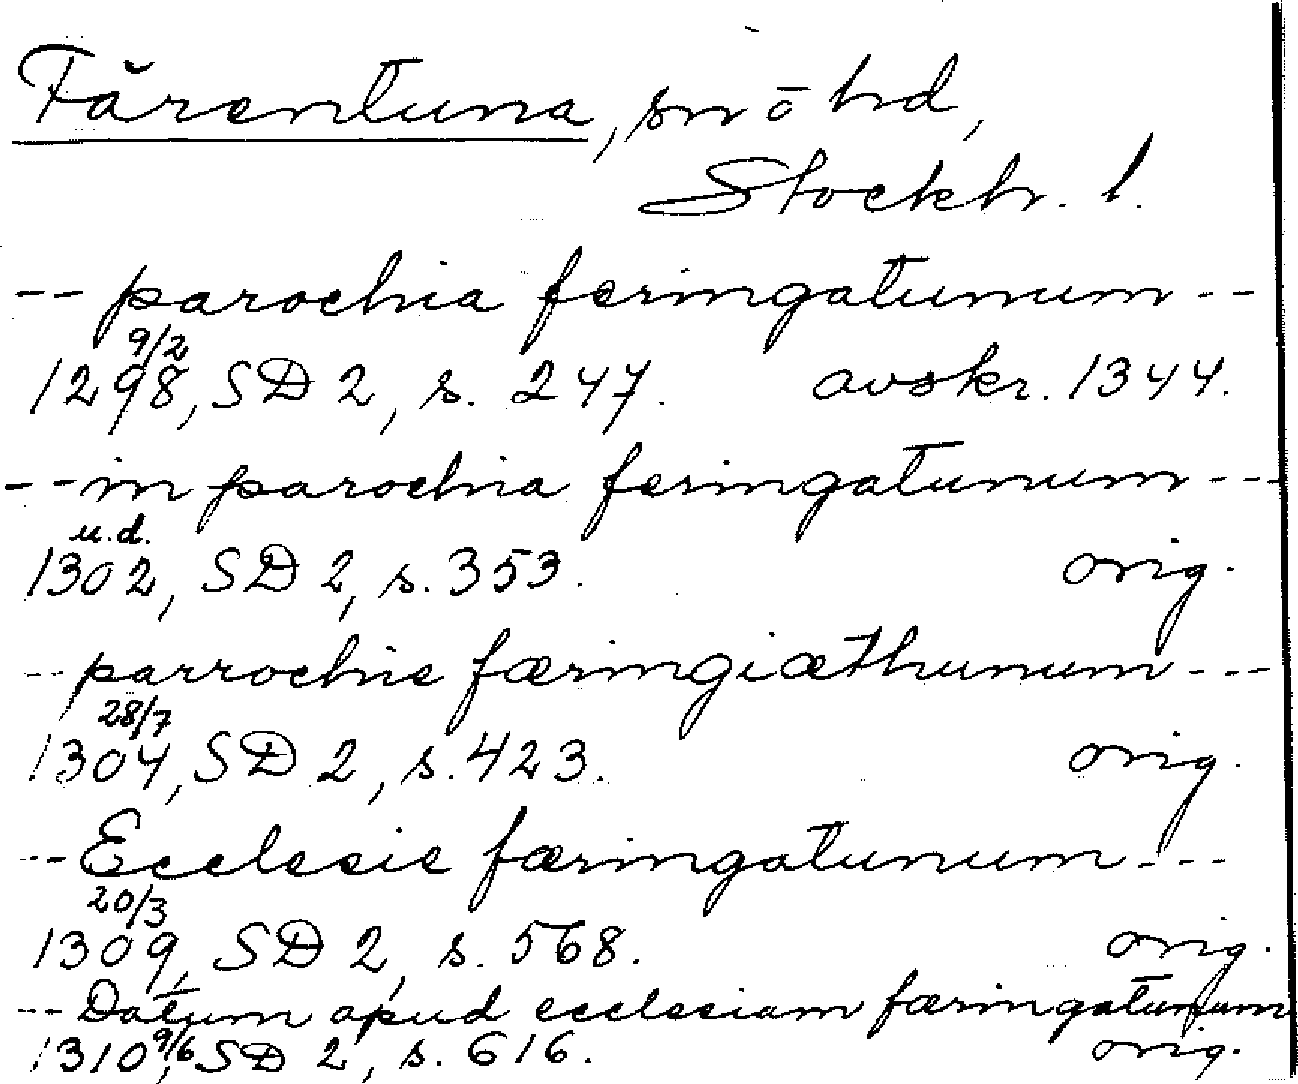 Färentuna, sn o hd,
Stockh. l.
-- parochia feringatunum --
9/2
1298, SD 2, s. 247. avskr. 1344.
-- in parochia feringatunum ---
u.d.
1302, SD 2, s. 353. orig.
-- parrochie færingiæthunum ---
28/7
1304, SD 2, s. 423. orig.
-- Ecclesie færingatunum ---
20/3
1309, SD 2, s. 568. orig.
-- Datum apud ecclesiam færingatunum
1310 9/6, SD 2, s. 616. orig.